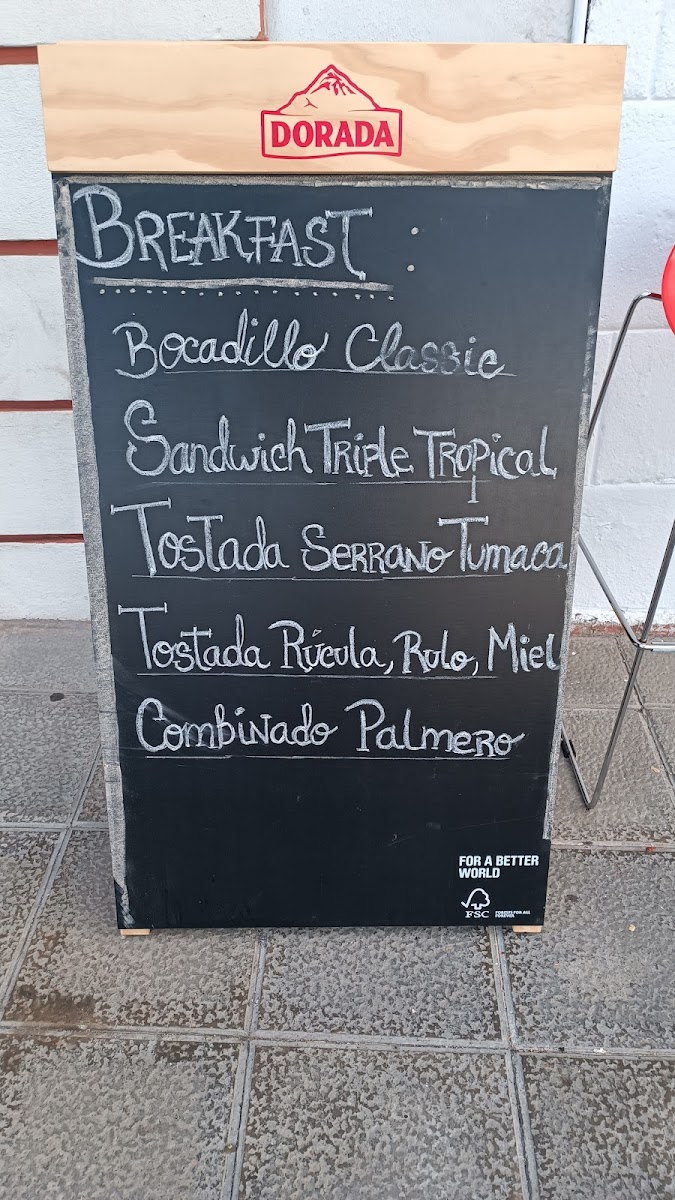 DORADA
BREAKFAST :
Bocadillo Classic
Sandwich Triple Tropical
Tostada Serrano Tumaca
Tostada Rúcula, Rulo, Miel
Combinado Palmero
FOR A BETTER
WORLD
FSC
FORESTS FOR ALL
FOREVER